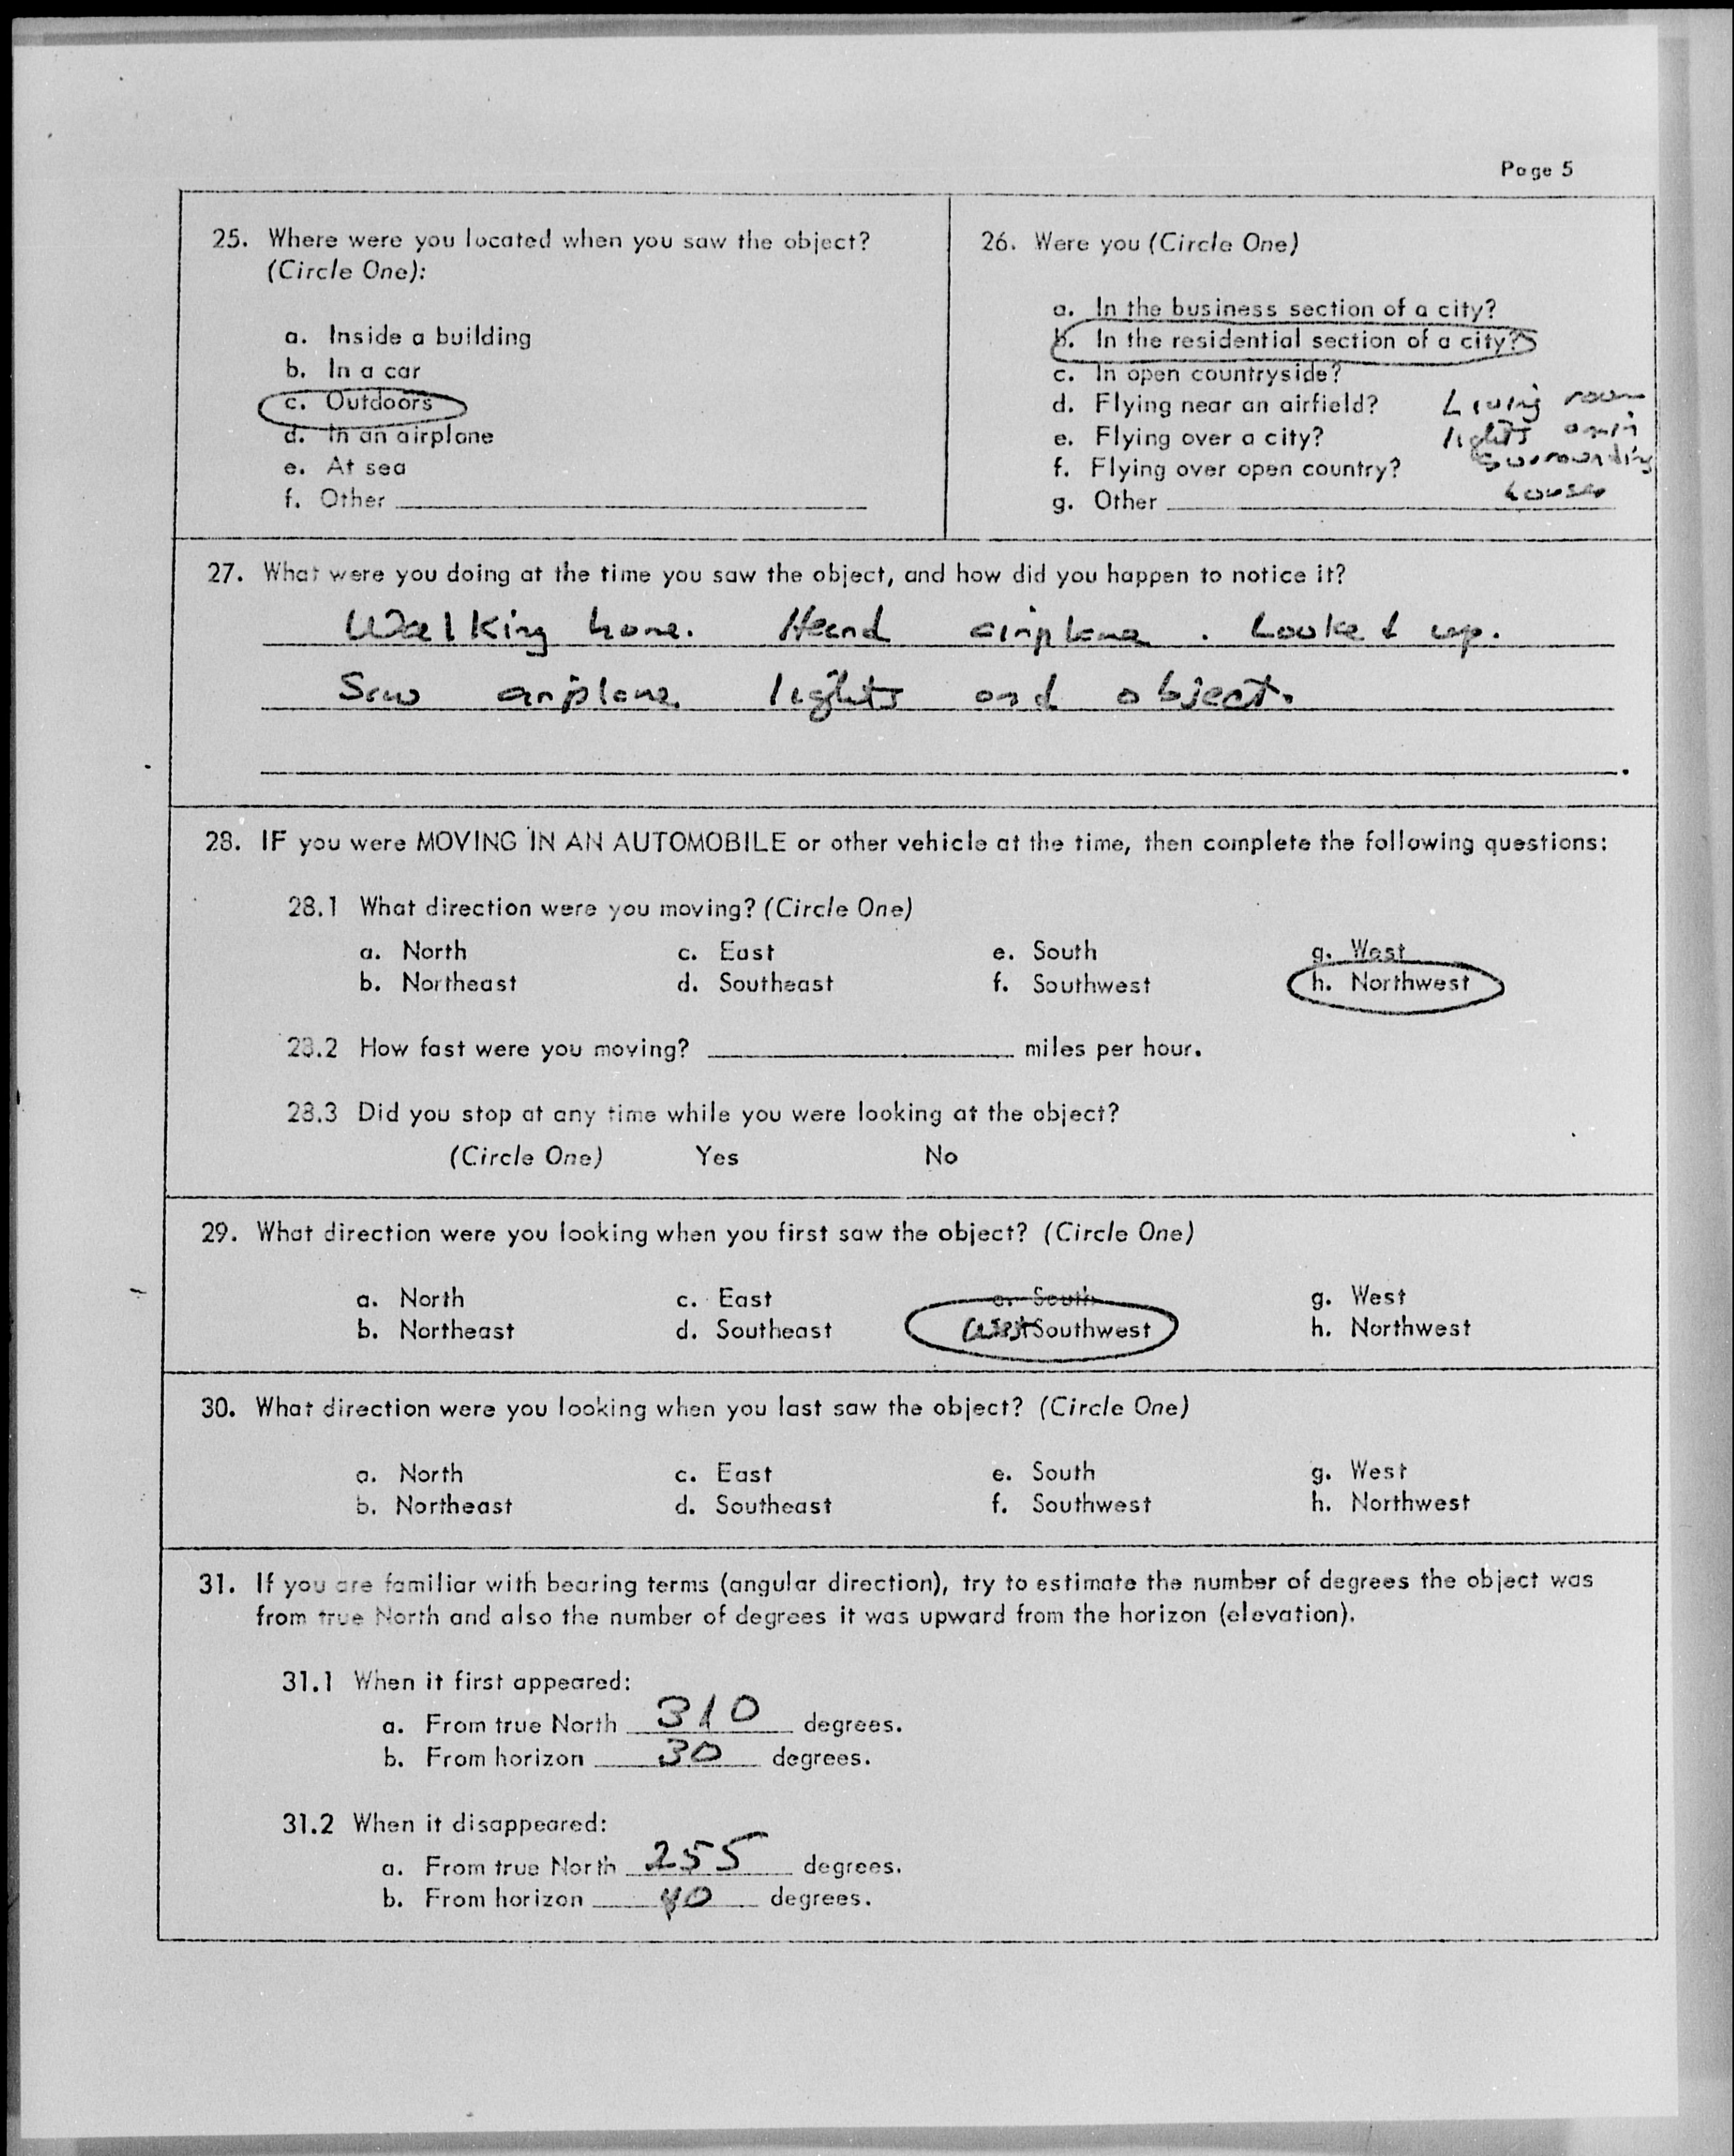 Page 5
25. Where were you located when you saw the object?
(Circle One):
a. Inside a building
b. In a car
c. Outdoors
d. In an airplane
e. At sea
f. Other
26. Were you (Circle One)
a. In the business section of a city?
b. In the residential section of a city?
c. In open countryside?
d. Flying near an airfield?
e. Flying over a city?
f. Flying over open country?
g. Other
Living room
lights on in
surrounding
houses
27. What were you doing at the time you saw the object, and how did you happen to notice it?
Walking home. Heard airplane. Looked up.
Saw airplane lights and object.
28. IF you were MOVING IN AN AUTOMOBILE or other vehicle at the time, then complete the following questions:
28.1 What direction were you moving? (Circle One)
a. North c. East e. South g. West
b. Northeast d. Southeast f. Southwest h. Northwest
28.2 How fast were you moving? miles per hour.
28.3 Did you stop at any time while you were looking at the object?
(Circle One) Yes No
29. What direction were you looking when you first saw the object? (Circle One)
a. North c. East e. South g. West
b. Northeast d. Southeast West Southwest h. Northwest
30. What direction were you looking when you last saw the object? (Circle One)
a. North c. East e. South g. West
b. Northeast d. Southeast f. Southwest h. Northwest
31. If you are familiar with bearing terms (angular direction), try to estimate the number of degrees the object was
from true North and also the number of degrees it was upward from the horizon (elevation).
31.1 When it first appeared:
a. From true North 310 degrees.
b. From horizon 30 degrees.
31.2 When it disappeared:
a. From true North 255 degrees.
b. From horizon 40 degrees.